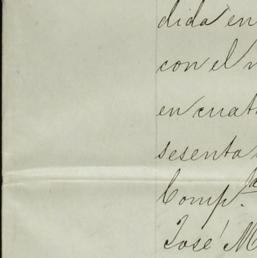 dida en
con el n
en cuat
sesenta
Comp.ª
José M